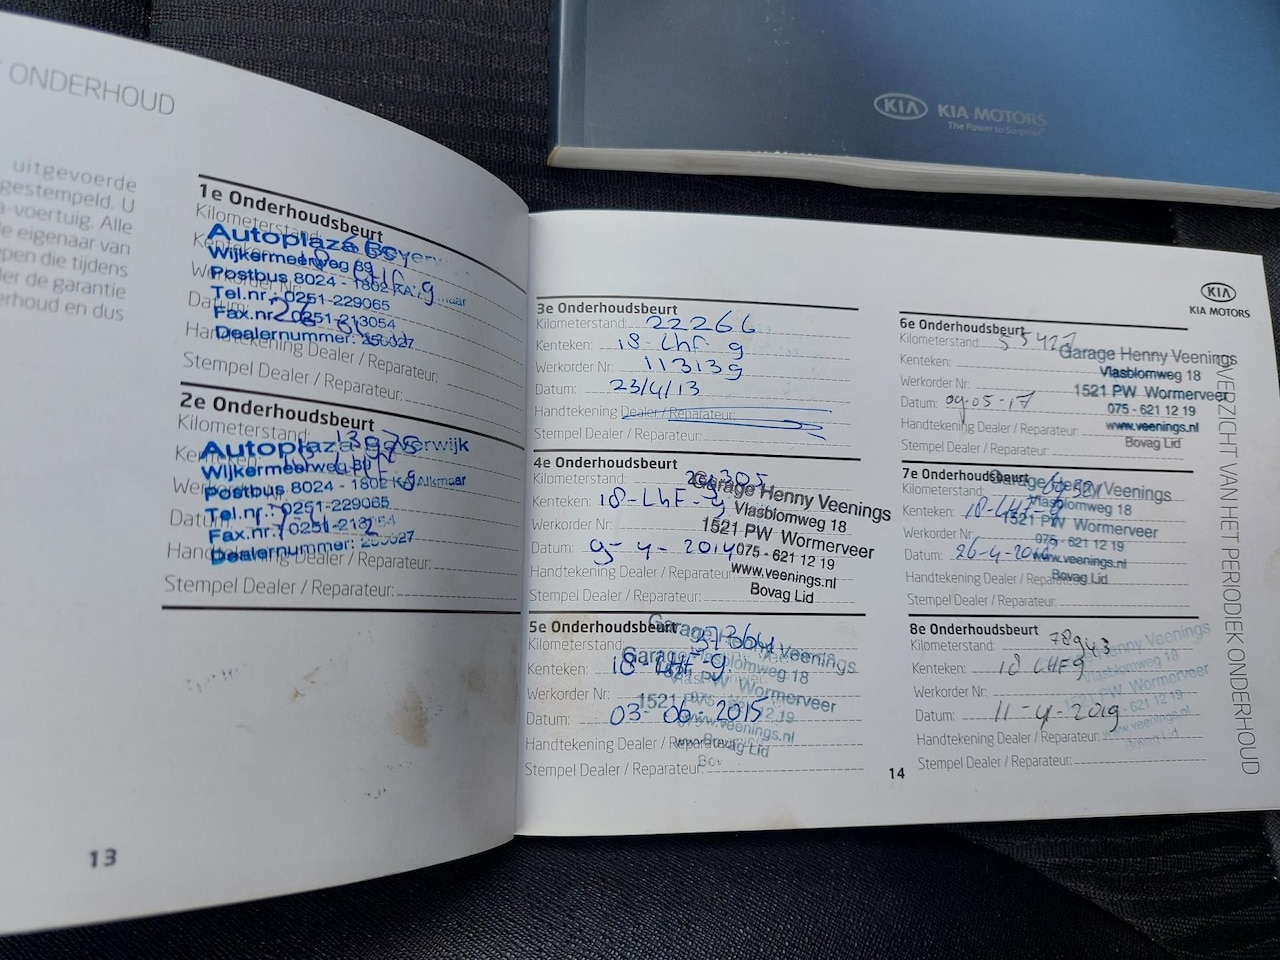 ONDERHOUD
uitgevoerde
gestempeld. U
a-voertuig. Alle
de eigenaar van
pen die tijdens
der de garantie
erhoud en dus
1e Onderhoudsbeurt
Kilometerstand:
Autoplaza
Wijkermeerweg 89
Postbus 8024 - 1802 KA Alkmaar
Tel.nr.: 0251-229065
Fax.nr.: 0251-213054
Dealernummer: 250027
Handtekening Dealer / Reparateur:
Stempel Dealer / Reparateur:
2e Onderhoudsbeurt
Kilometerstand: 13975
Autoplaza
Wijkermeerweg 89
Postbus 8024 - 1802 KA Alkmaar
Tel.nr.: 0251-229065
Fax.nr.: 0251-213054
Dealernummer: 250027
Handtekening Dealer / Reparateur:
Stempel Dealer / Reparateur:
13
KIA KIA MOTORS
The Power to Surprise
3e Onderhoudsbeurt
Kilometerstand: 22266
Kenteken: 18-LHF-9
Werkorder Nr: 113139
Datum: 23/4/13
Handtekening Dealer / Reparateur:
Stempel Dealer / Reparateur:
4e Onderhoudsbeurt
Kilometerstand:
Kenteken: 18-LHF-9
Werkorder Nr:
Datum: 9-4-2014
Handtekening Dealer / Reparateur:
Stempel Dealer / Reparateur:
Garage Henny Veenings
Vlasblomweg 18
1521 PW Wormerveer
075 - 621 12 19
www.veenings.nl
Bovag Lid
5e Onderhoudsbeurt
Kilometerstand: 37364
Kenteken: 18-LHF-9
Werkorder Nr:
Datum: 03-06-2015
Handtekening Dealer / Reparateur:
Stempel Dealer / Reparateur:
Garage Henny Veenings
Vlasblomweg 18
1521 PW Wormerveer
www.veenings.nl
Bovag Lid
14
KIA
KIA MOTORS
6e Onderhoudsbeurt
Kilometerstand:
Kenteken:
Werkorder Nr:
Datum: 09-05-17
Handtekening Dealer / Reparateur:
Stempel Dealer / Reparateur:
Garage Henny Veenings
Vlasblomweg 18
1521 PW Wormerveer
075 - 621 12 19
www.veenings.nl
Bovag Lid
7e Onderhoudsbeurt
Kilometerstand:
Kenteken: 18-LHF-9
Werkorder Nr:
Datum: 26-4-
Handtekening Dealer / Reparateur:
Stempel Dealer / Reparateur:
Garage Henny Veenings
Vlasblomweg 18
1521 PW Wormerveer
075 - 621 12 19
www.veenings.nl
Bovag Lid
8e Onderhoudsbeurt
Kilometerstand: 78943
Kenteken: 18 LHF9
Werkorder Nr:
Datum: 11-4-2019
Handtekening Dealer / Reparateur:
Stempel Dealer / Reparateur:
Henny Veenings
Vlasblomweg 18
PW Wormerveer
621 12 19
www.veenings.nl
Bovag Lid
OVERZICHT VAN HET PERIODIEK ONDERHOUD